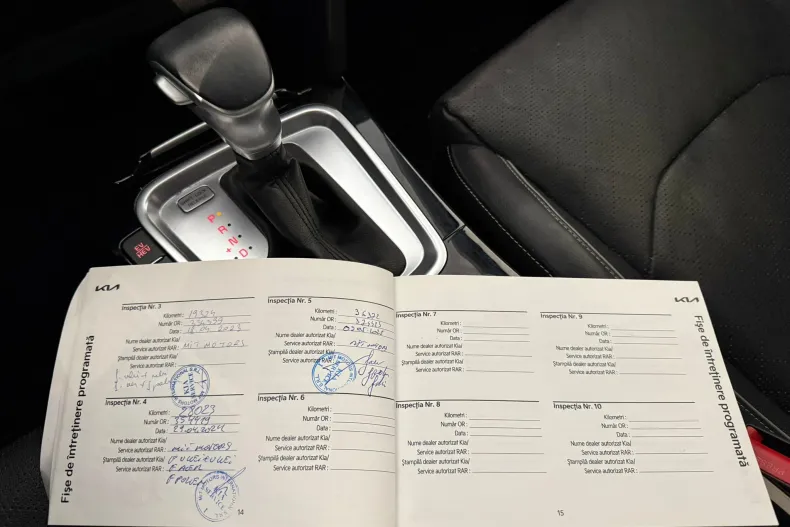 P
R
N
+
D
EV
HEV
KIA
Fişe de întreţinere programată
Inspecţia Nr. 3
Kilometri : 19324
Număr OR :
Data :
Nume dealer autorizat Kia/
Service autorizat RAR : MIT MOTORS
Ştampilă dealer autorizat Kia/
Service autorizat RAR :
Inspecţia Nr. 4
Kilometri : 28023
Număr OR :
Data : 29.04.2024
Nume dealer autorizat Kia/
Service autorizat RAR : MIT MOTORS
Ştampilă dealer autorizat Kia/
Service autorizat RAR :
14
Inspecţia Nr. 5
Kilometri :
Număr OR :
Data :
Nume dealer autorizat Kia/
Service autorizat RAR :
Ştampilă dealer autorizat Kia/
Service autorizat RAR :
Inspecţia Nr. 6
Kilometri :
Număr OR :
Data :
Nume dealer autorizat Kia/
Service autorizat RAR :
Ştampilă dealer autorizat Kia/
Service autorizat RAR :
Inspecţia Nr. 7
Kilometri :
Număr OR :
Data :
Nume dealer autorizat Kia/
Service autorizat RAR :
Ştampilă dealer autorizat Kia/
Service autorizat RAR :
Inspecţia Nr. 8
Kilometri :
Număr OR :
Data :
Nume dealer autorizat Kia/
Service autorizat RAR :
Ştampilă dealer autorizat Kia/
Service autorizat RAR :
15
KIA
Inspecţia Nr. 9
Kilometri :
Număr OR :
Data :
Nume dealer autorizat Kia/
Service autorizat RAR :
Ştampilă dealer autorizat Kia/
Service autorizat RAR :
Inspecţia Nr. 10
Kilometri :
Număr OR :
Data :
Nume dealer autorizat Kia/
Service autorizat RAR :
Ştampilă dealer autorizat Kia/
Service autorizat RAR :
Fişe de întreţinere programată